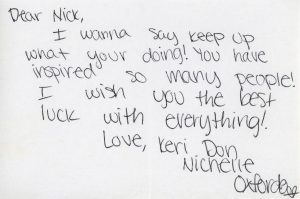 Dear Nick,
I wanna say keep up
what your doing! You have
inspired so many people!
I wish you the best
luck with everything!
Love, Keri Don
Nichelle
Oxford